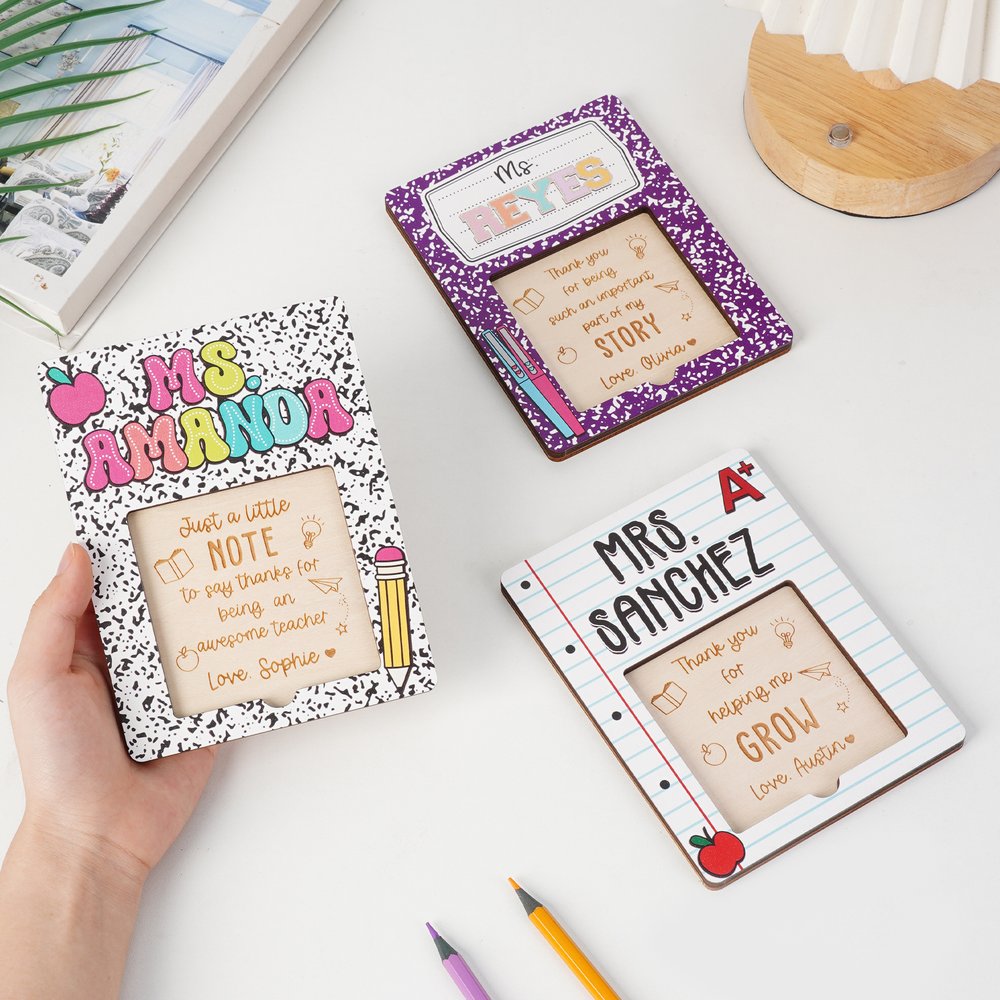 MS.
AMANDA
Just a little
NOTE
to say thanks for
being an
awesome teacher
Love, Sophie
Ms.
REYES
Thank you
for being
such an important
part of my
STORY
Love, Olivia
A+
MRS.
SANCHEZ
Thank you
for
helping me
GROW
Love, Austin